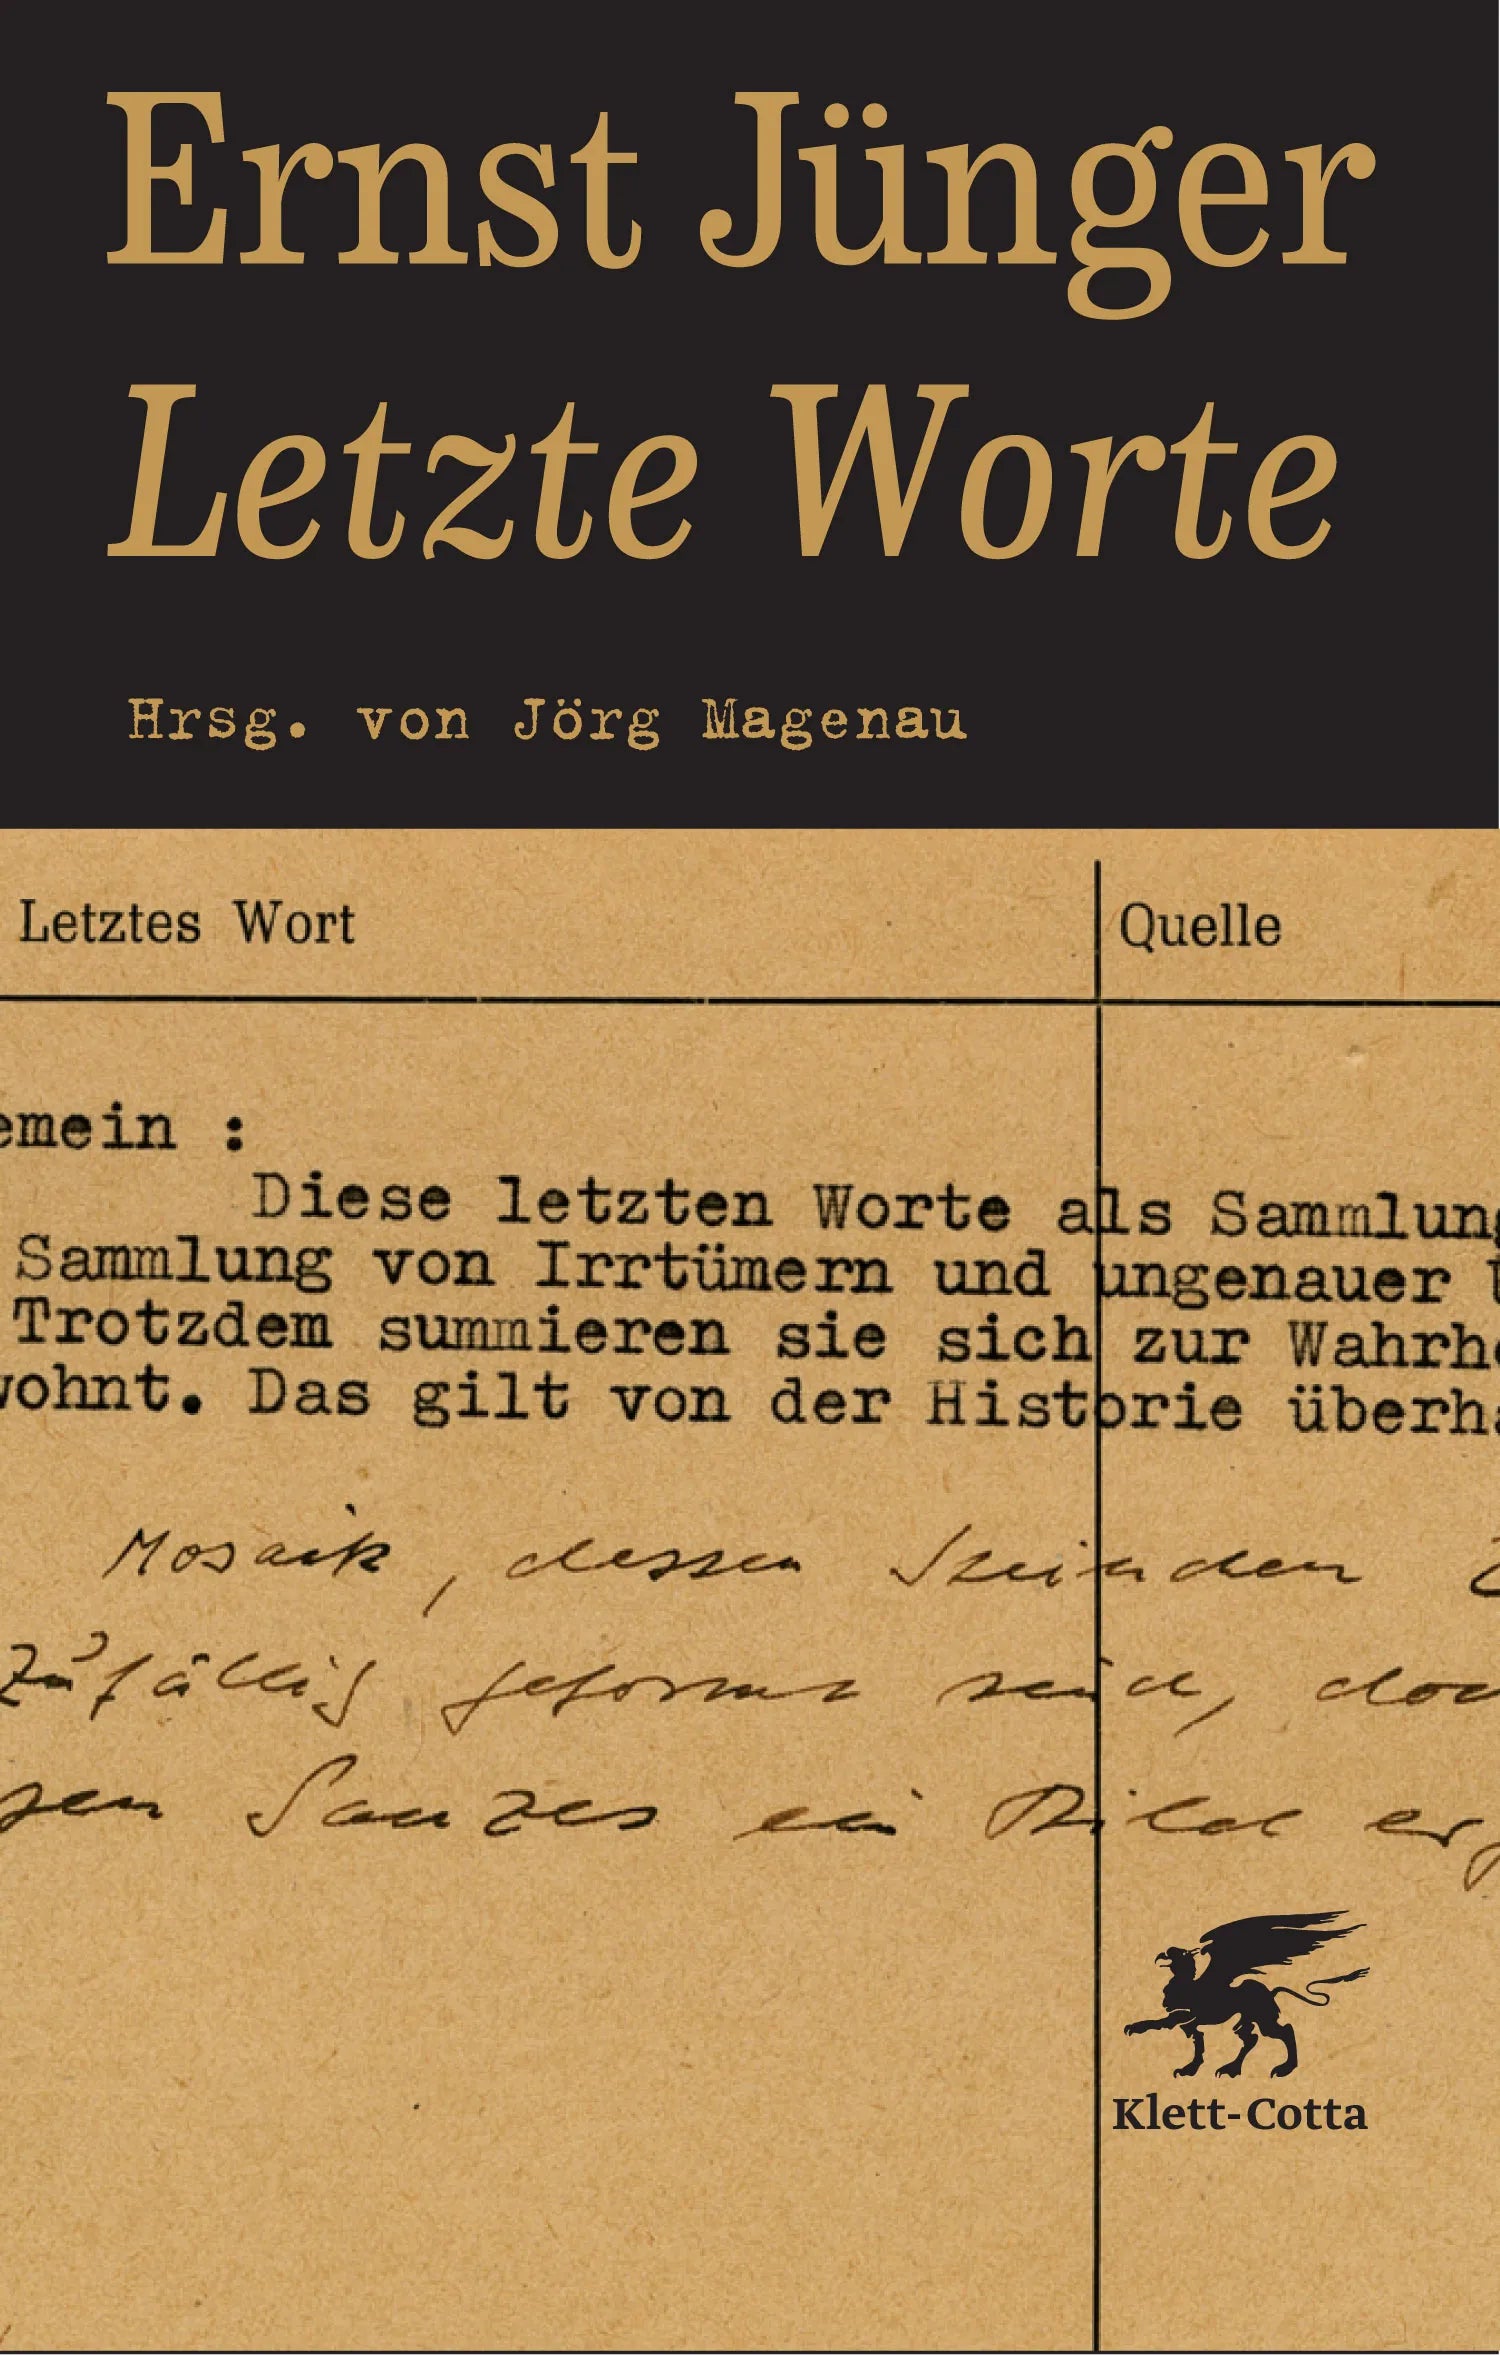 Ernst Jünger
Letzte Worte
Hrsg. von Jörg Magenau
Letztes Wort
Quelle
emein :
Diese letzten Worte als Sammlung
Sammlung von Irrtümern und ungenauer
Trotzdem summieren sie sich zur Wahrhe
wohnt. Das gilt von der Historie überha
Mosaik, dessen Steinden
zufällig geformt sind, doch
sen Ganzes ein Bild erg
Klett-Cotta